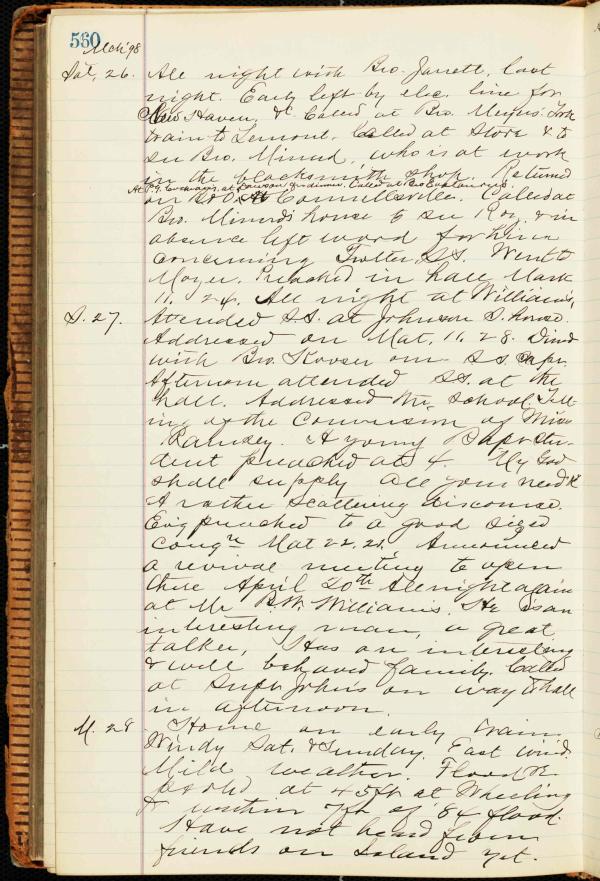 560
Mch '98
Sat, 26. All night with Bro. Jarrett, last
night. Early left by elec. line for
New Haven, &c. Called at Bro. Meyers. Took
train to Lemont. Called at Store & to
see Bro. Minerd, who is at work
in the blacksmith shop. Returned
on B&O. to Connellsville. Called at
At dinner. Called at Bro
Bro. Minerd's house to see Roy, & in
absence left word for him
concerning Trotter S.S. Went to
Moyer. Preached in hall Mark
11. 24. All night at Williams',
S. 27. Attended S.S. at Johnson S. house.
Addressed on Mat. 11. 28. Dined
with Bro. Kooser our S.S. Supt.
Afternoon attended S.S. at the
hall. Addressed the school, Tell-
ing of the Conversion of Miss
Ramsey. A young Bapt stu-
dent preached at 4. "My God
shall supply all your need" &c
A rather scattering discourse.
Ev'g preached to a good sized
cong'n Mat 22. 21. Announced
a revival meeting to open
there April 20th All night again
at Mr B.W. Williams'. He is an
interesting man, a great
talker, Has an interesting
& well behaved family. Called
at Supt John's on way to hall
in afternoon.
M. 28 Home on early train.
Windy Sat. & Sunday. East wind.
Mild weather. Flood
at 45ft at Wheeling
& within 7ft of '84 flood.
Have not heard from
friends on Island yet.